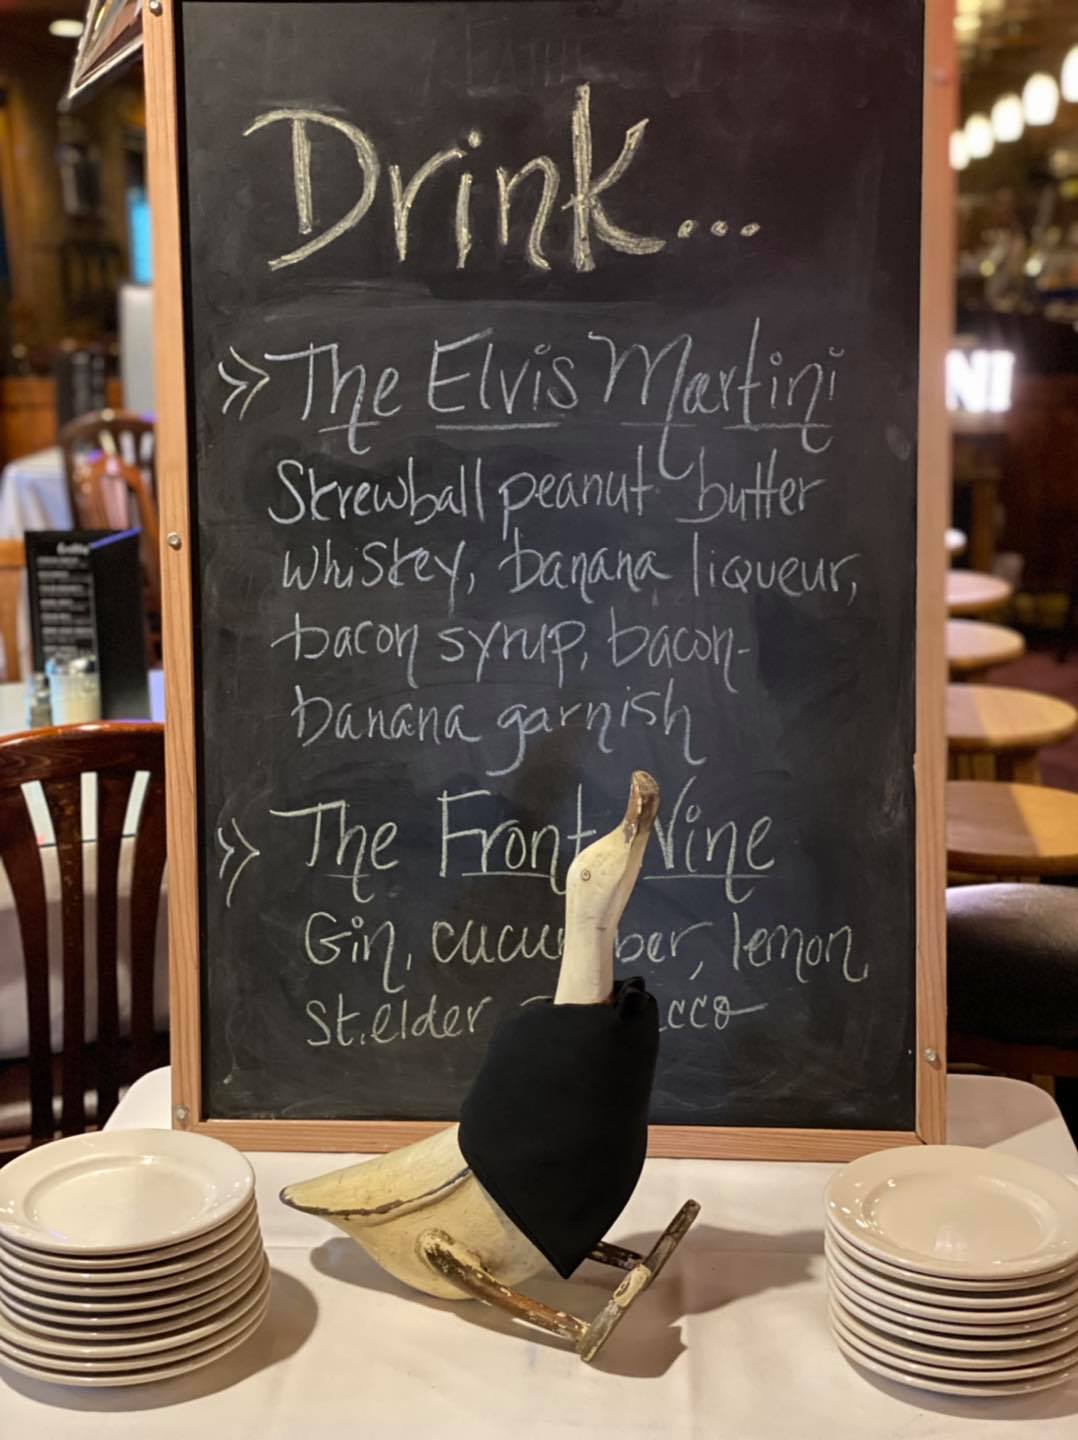 Drink...
>> The Elvis Martini
Skrewball peanut butter
whiskey, banana liqueur,
bacon syrup, bacon-
banana garnish
>> The Front Vine
Gin, cucumber, lemon,
St. elder
NI